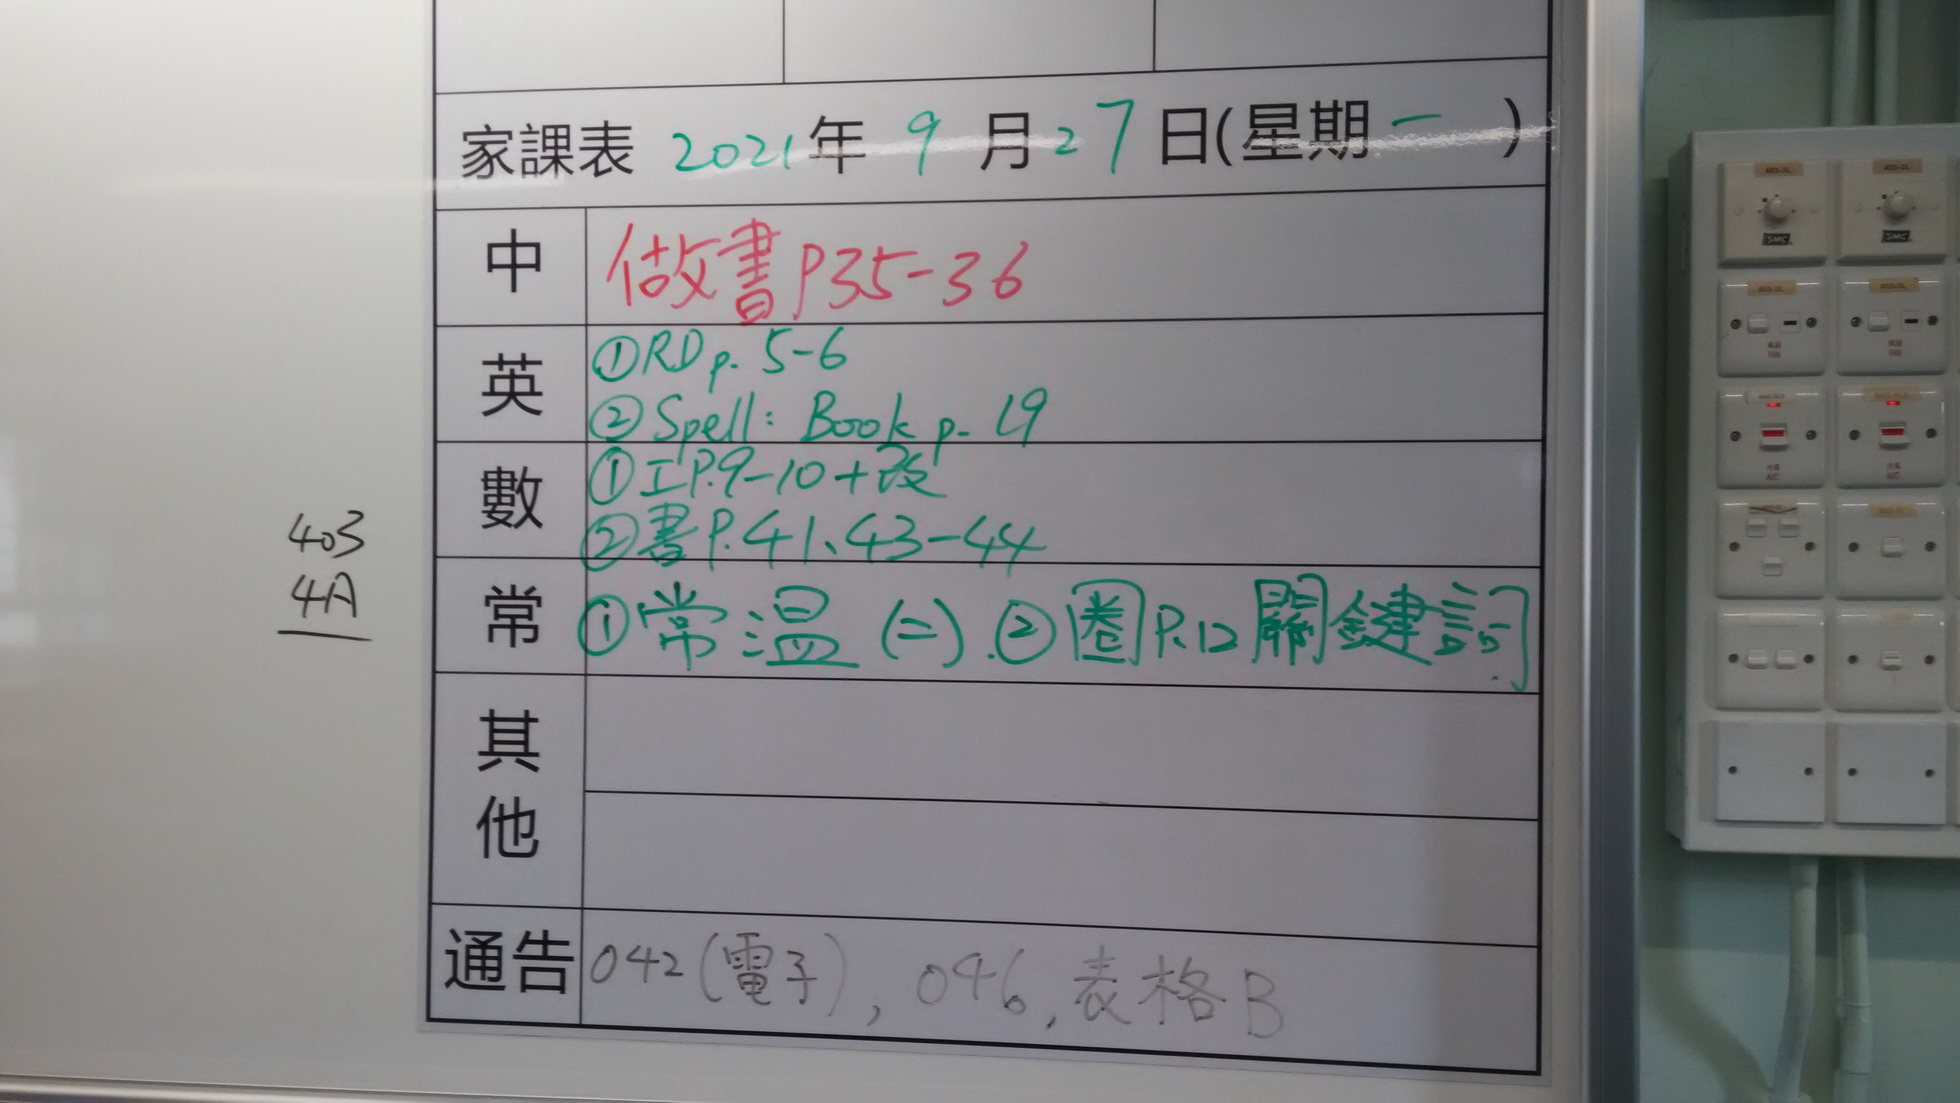 家課表 2021年 9月27日(星期一)
中 做書P35-36
英 ①RD p. 5-6
②Spell: Book p. 19
數 ①工P.9-10+改
②書P.41、43-44
403
4A
常 ①常溫(二).②圈P.12關鍵詞.
其他
通告 042(電子), 046, 表格B
SMC
SMC